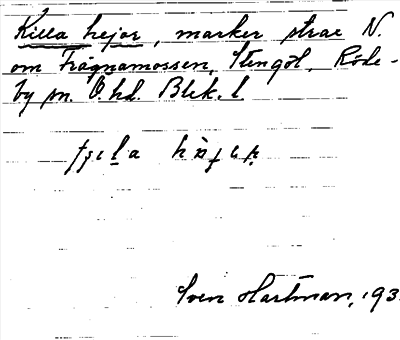 Killa hejor, marker strax N.
om Frägnamossen, Stengöl, Röde-
by sn. Ö. hd. Blek. l.
Sven Hartman, 193